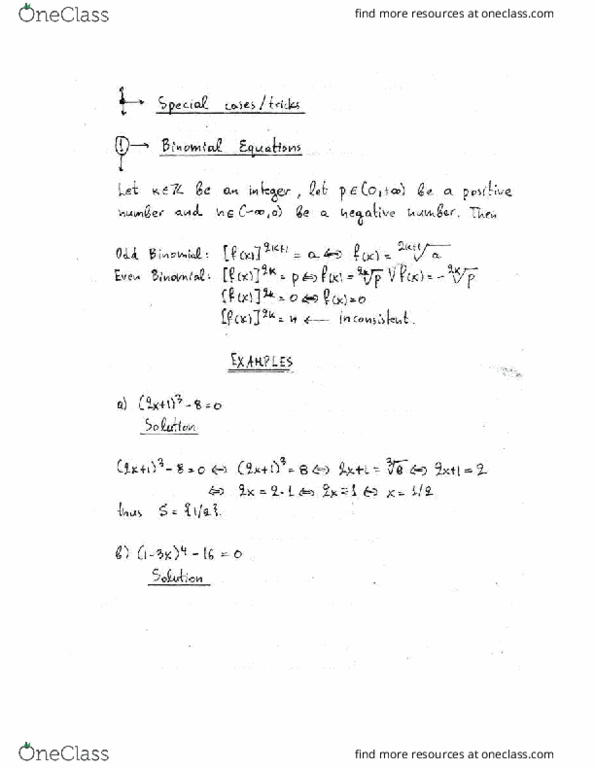 OneClass
find more resources at oneclass.com
Special cases/tricks
① → Binomial Equations
Let κ∈ℤ be an integer, let p∈(0,+∞) be a positive
number and n∈(-∞,0) be a negative number. Then
Odd Binomial: [f(x)]^{2κ+1} = a ⇔ f(x) = ^{2κ+1}√a
Even Binomial: [f(x)]^{2κ} = p ⇔ f(x) = ^{2κ}√p ∨ f(x) = -^{2κ}√p
[f(x)]^{2κ} = 0 ⇔ f(x) = 0
[f(x)]^{2κ} = n ← inconsistent.
EXAMPLES
a) (2x+1)³ - 8 = 0
Solution
(2x+1)³ - 8 = 0 ⇔ (2x+1)³ = 8 ⇔ 2x+1 = ³√8 ⇔ 2x+1 = 2
⇔ 2x = 2-1 ⇔ 2x = 1 ⇔ x = 1/2
thus S = {1/2}.
b) (1-3x)⁴ - 16 = 0
Solution
OneClass
find more resources at oneclass.com